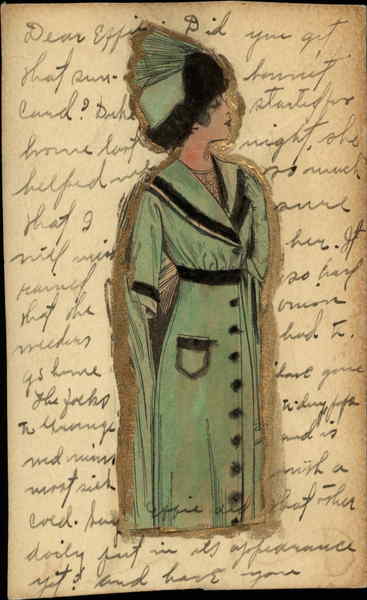 Dear Effie. Did you get
that sun- bonnet
card? Duke started for
home last night, she
helped me so much
that I sure
will miss her. It
rained so hard
that the
weeders had to
go home have gone
The folks today
to Orange and is
most sick with a
cold. Say Effie did that other
doily put in its appearance
yet? and have you